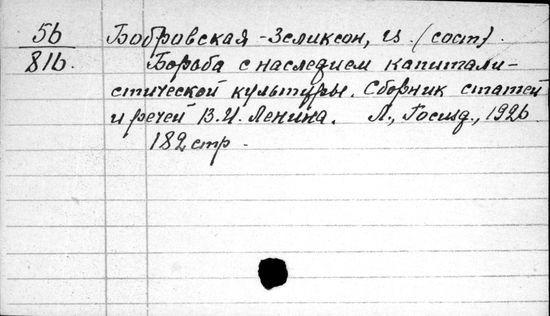 5б Бобровская-Зеликсон, Ц. (сост).
81б. Борьба с наследием капитали-
стической культуры. Сборник статей
и речей В.И. Ленина. Л., Госизд., 1926.
182 стр.